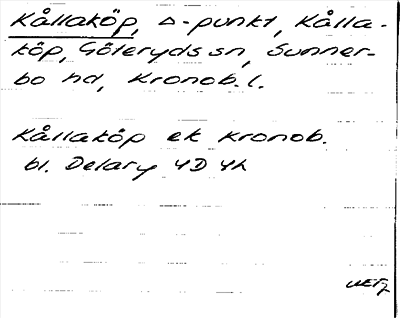 Kållaköp, Δ-punkt, Kålla-
köp, Göteryds sn, Sunner-
bo hd, Kronob. l.
Kållaköp ek Kronob.
bl. Delary 4D 4h